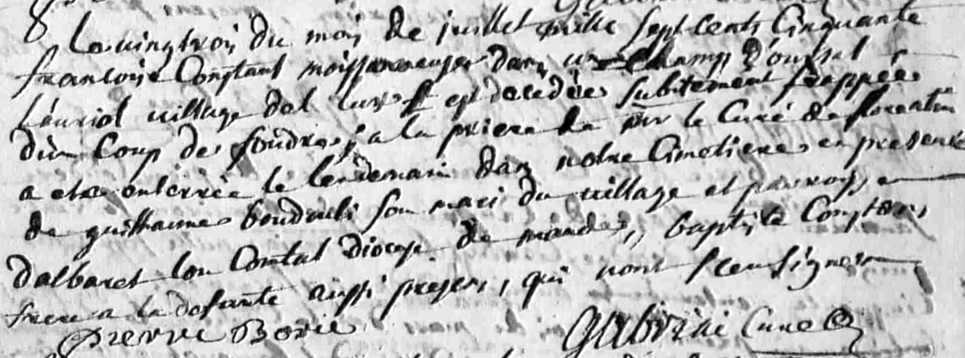 Le vingtroy du mois de juillet mille sept cents cinquante
francoise Constant moissonneuse dans un champ d'oustal
village del est decedée subitement frappée
d'un Coup de foudre, a la priere de mr le Curé de florentin
a eté enterrée le lendemain dans notre Cimetiere en presence
de guillaume son mari du village et parroisse
d'albaret lou Comtal Diocese de mande, baptiste Constans
frere a la defunte aussi presens, qui nont sceu signer
pierre Borie Curé